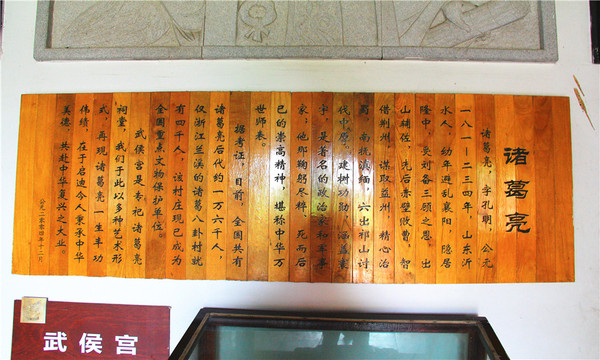 诸葛亮
诸葛亮，字孔明，公元
一八一—二三四年，山东沂
水人，幼年避乱襄阳，隐居
隆中，受刘备三顾之恩，出
山辅佐，先后赤壁败曹，智
借荆州，谋取益州，精心治
蜀，南抚滇缅，六出祁山诗
伐中原，建树功勋，涵盖寰
宇，是著名的政治家和军事
家，他那鞠躬尽瘁，死而后
已的崇高精神，堪称中华万
世师表。
据考证，目前，全国共有
诸葛亮后代约一万六千人，
仅浙江兰溪的诸葛八卦村就
有四千人，该村庄现已成为
全国重点文物保护单位。
武侯宫是专祀诸葛亮
祠堂，我们于此以多种艺术形
式，再现诸葛亮一生丰功
伟绩，在于启迪今人秉承中华
美德，共赴中华复兴之大业。
公元二零零四年十二月
武侯宫